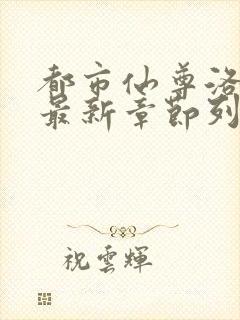 都市仙尊洛
最新章節列
祝雲輝